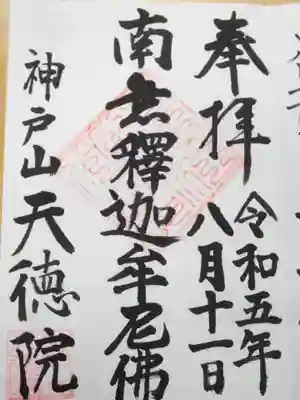 奉拝
令和五年
八月十一日
南无釋迦牟尼佛
神戸山天徳院